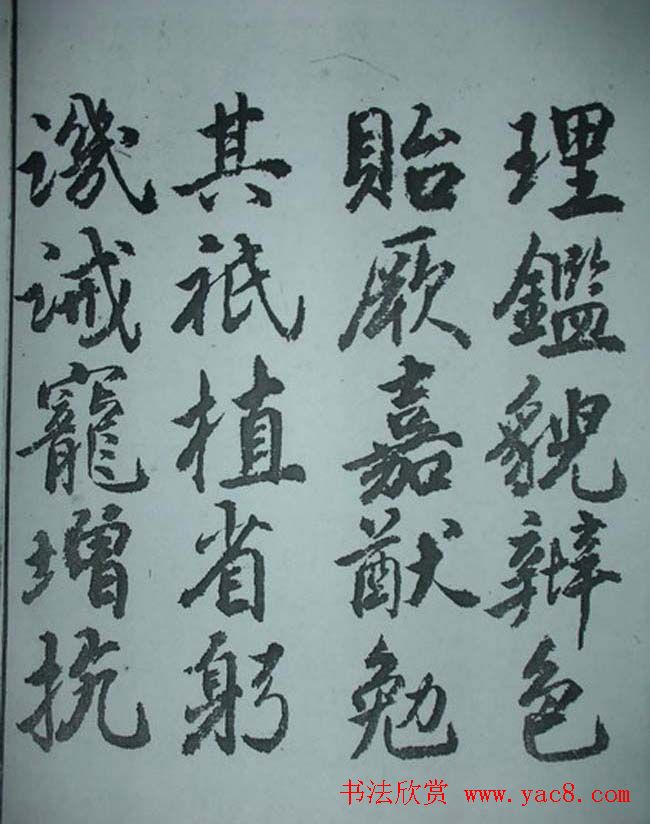 理鑑貌辯色
貽厥嘉猷勉
其祇植省躬
譏誡寵增抗
书法欣赏 www.yac8.com